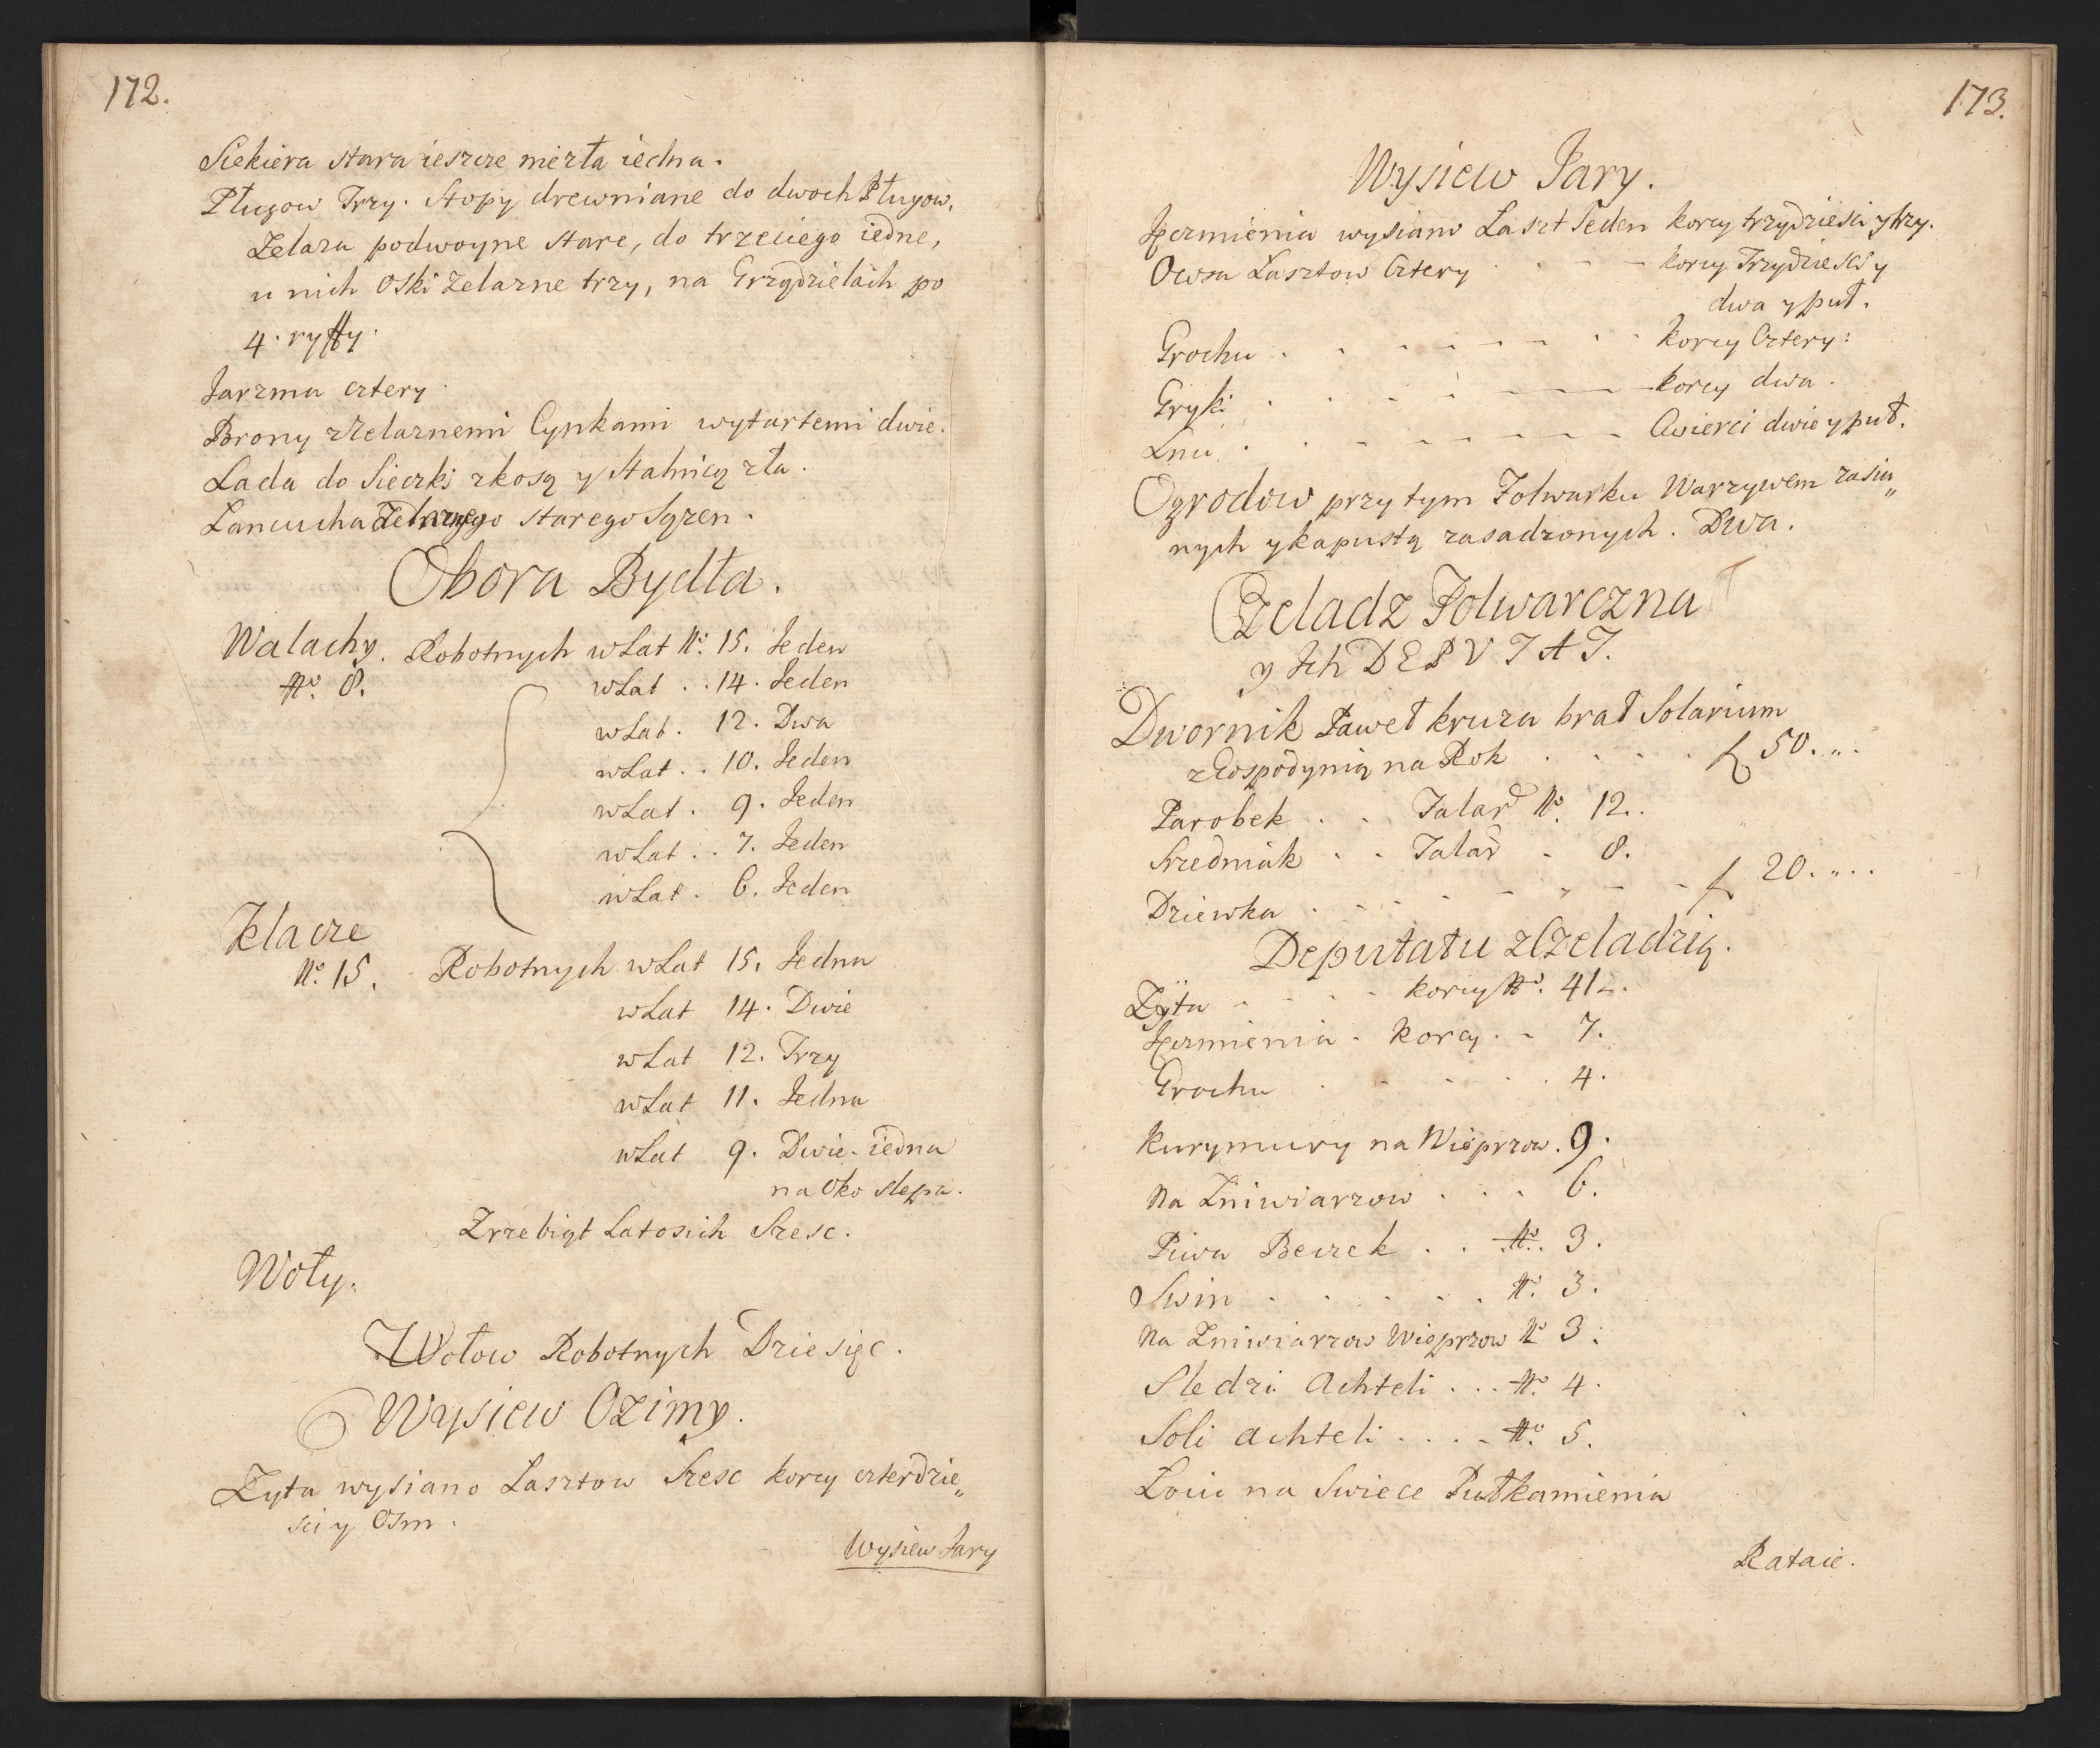 172.
Siekiera stara ieszcze niezła iedna.
Pługow Trzy. Stopy drewniane do dwoch Pługow,
Zelaza podwoyne stare, do trzeciego iedne,
u nich Oski Zelazne trzy, na Grządzielach po
4. ryffy.
Jarzma cztery.
Brony zZelaznemi Cynkami wytartemi dwie.
Lada do Sieczki zkosą y Stalnicą zła.
Lancucha Zelaznego starego Sązen.
Obora Bydła.
Walachy. Robotnych wLat No. 15. Jeden
No. 8. wLat . . 14. Jeden
wLat . 12. Dwa
wLat . . 10. Jeden
wLat . 9. Jeden
wLat . . 7. Jeden
wLat . 6. Jeden
Klacze
No. 15. Robotnych wLat 15. Jedna
wLat 14. Dwie
wLat 12. Trzy
wLat 11. Jedna
wLat 9. Dwie. iedna
na Oko slepa.
Zrzebiąt Latosich Szesc.
Woły.
Wołow Robotnych Dziesięc.
Wysiew Ozimy.
Zyta wysiano Lasztow Szesc korcy czterdzie„
sci y Osm.
Wysiew Jary
173.
Wysiew Jary.
Jęczmienia wysiano Laszt Jeden korcy trzydziesci y trzy.
Owsa Lasztow Cztery . - - - korcy Trzydziesci y
dwa y puł.
Grochu . . - - - - . . korcy Cztery:
Gryki . . - - - korcy dwa.
Lnu . . - - - - Cwierci dwie y puł.
Ogrodow przy tym Folwarku Warzywem zasia„
nych y kapustą zasadzonych. Dwa.
Czeladz Folwarczna
y Jch DEPVTAT.
Dwornik Paweł kruza brał Solarium
zGospodynią na Rok . . . . f 50. „.
Parobek . . Talar No. 12..
Szredniak . . Talar - 8.
Dziewka . - - - - - f 20. „..
Deputatu zCzeladzią.
Zyta - - - - korcy No. 41
Jęczmienia - korcy . - 7.
Grochu . . . . . 4.
na Wieprzow. 9.
Na Zniwiarzow . . . 6.
Piwa Beczek . . No. 3.
Swin . . . . . No. 3.
Na Zniwiarzow Wieprzow No 3.
Sledzi Achteli . . . No. 4.
Soli achteli . . . . No. 5.
Łoiu na Swiece Puł kamienia
Rataie.